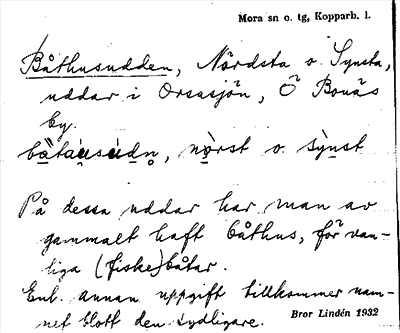 Mora sn o. tg, Kopparb. l.
Båthusudden, Nordsta o. Synsta,
uddar i Orsasjön, Ö Bonäs
by.
o. sỳnst
På dessa uddar har man av
gammalt haft båthus, för van-
liga (fiske)båtar.
Enl. annan uppgift tillkommer nam-
net blott den sydligare.
Bror Lindén 1932